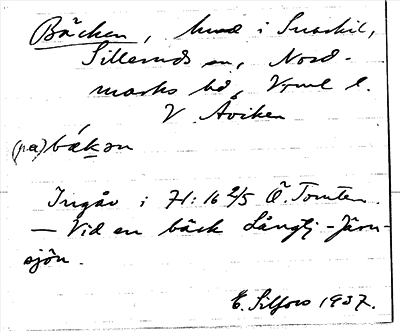 Bäcken, hmd i Snarkil,
Silleruds sn, Nord-
marks hd, Vrml l.
V Åviken
(på) bäkən
Ingår i 71:16 2/5 Ö. Tomten.
— Vid en bäck Långtj-Järn-
sjön.
E. Silfors 1937.